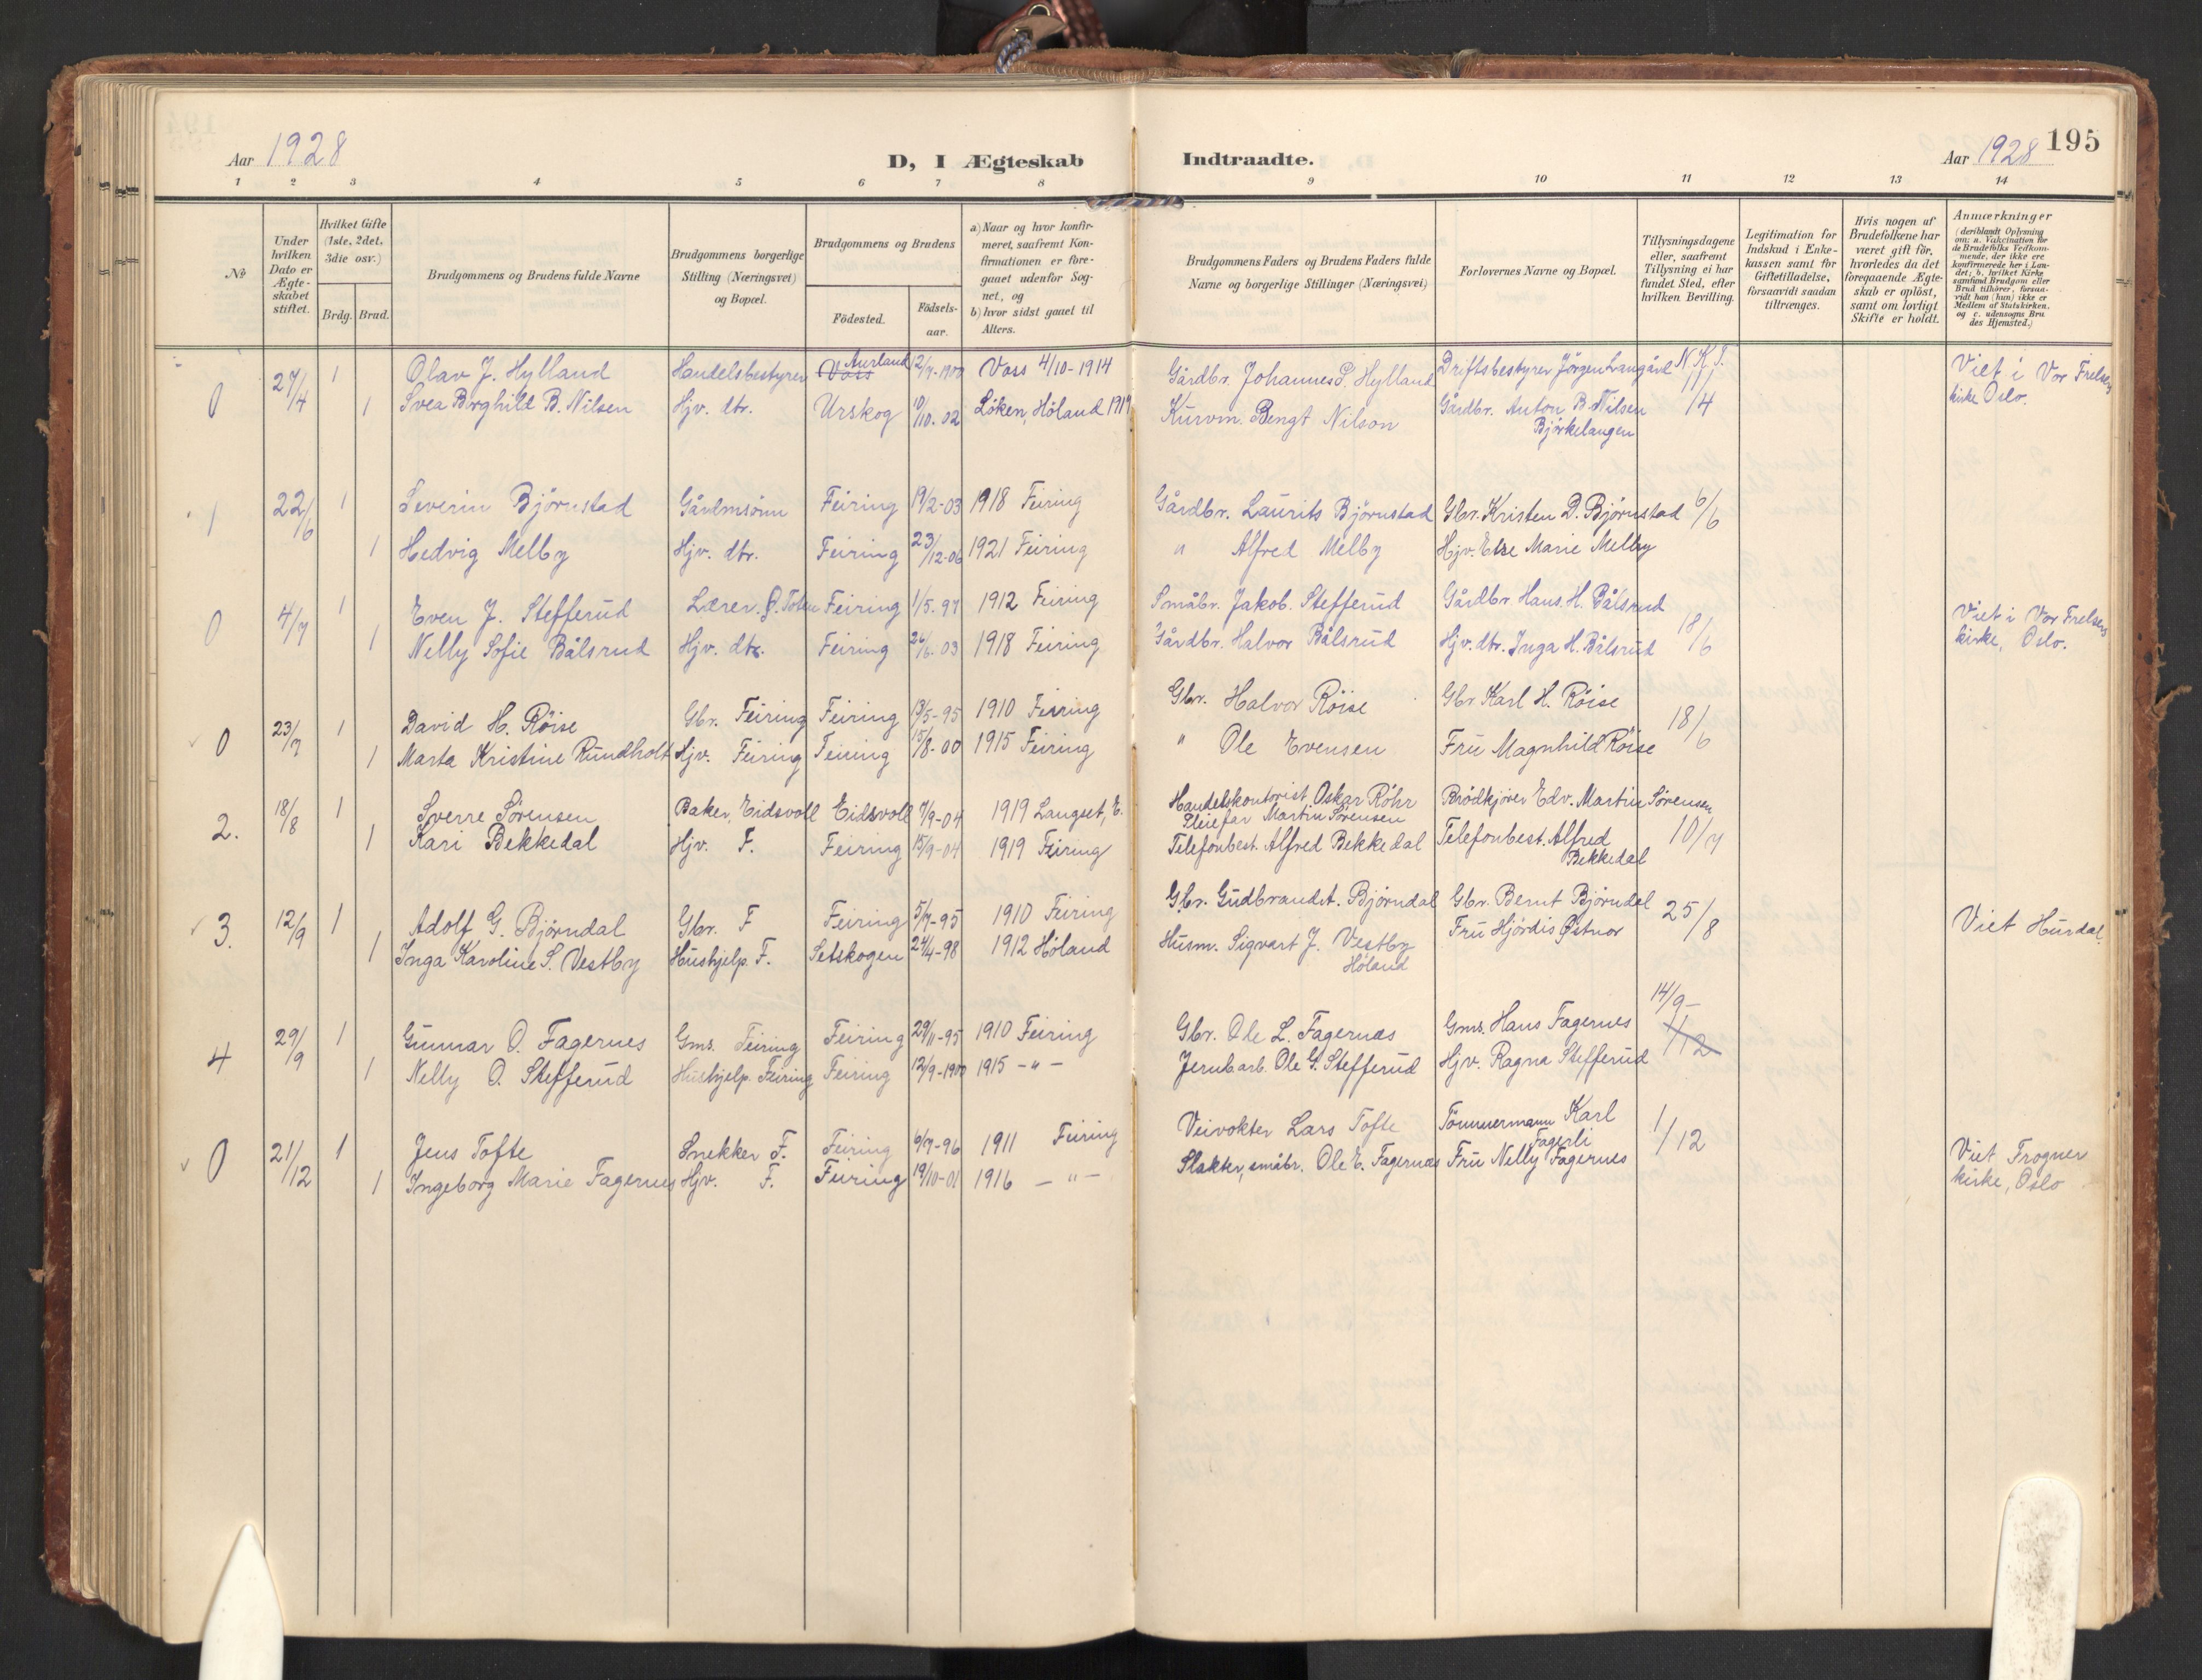 Aar 1928
D, I Ægteskab Indtraadte.
Aar 1928 195
1 2 3 4 5 6 7 8 9 10 11 12 13 14
No.
Under hvilken Dato er Ægteskabet stiftet.
Hvilket Gifte (1ste, 2det, 3die osv.)
Brdg. Brud.
Brudgommens og Brudens fulde Navne
Brudgommens borgerlige Stilling (Næringsvei) og Bopæl.
Brudgommens og Brudens
Födested. Födselsaar.
a) Naar og hvor konfirmeret, saafremt Konfirmationen er foregaaet udenfor Sognet, og
b) hvor sidst gaaet til Alters.
Brudgommens Faders og Brudens Faders fulde Navne og borgerlige Stillinger (Næringsvei)
Forlovernes Navne og Bopæl.
Tillysningsdagene eller, saafremt Tillysning ei har fundet Sted, efter hvilken Bevilling.
Legitimation for Indskud i Enkekassen samt for Giftetilladelse, forsaavidt saadan tiltrænges.
Hvis nogen af Brudefolkene har været gift för, hvorledes da det foregaaende Ægteskab er oplöst, samt om lovligt Skifte er holdt.
Anmærkninger (deriblandt Oplysning om: a. Vakcination for de Brudefolks Vedkommende, der ikke ere konfirmerede her i Landet; b. hvilket Kirkesamfund Brudgom eller Brud tilhörer, forsaavidt han (hun) ikke er Medlem af Statskirken, og c. udensogns Brudes Hjemsted.)
0 27/4 1 Olav J. Hylland Handelsbestyrer Voss Aurland 12/7-1900 Voss 4/10-1914 Gårdbr. Johannes S. Hylland Driftsbestyrer Jörgen Langård N.K.T. Viet i Vor Frelsers
1 Svea Borghild B. Nilsen Hjv. dtr. Urskog 10/10-02 Løken, Höland 1917 Kurvm. Bengt Nilson Gårdbr. Anton B. Nilsen 11/4 kirke Oslo.
Björkelangen
1 22/6 1 Severin Björnstad Gårdmsönn Feiring 19/2-03 1918 Feiring Gårdbr. Laurits Björnstad Gbr. Kristen D. Björnstad 6/6
1 Hedvig Melby Hjv. dtr. Feiring 23/12-06 1921 Feiring " Alfred Melby Hjv. Else Marie Melby
0 4/7 1 Even J. Stefferud Lærer. Ø. Toten Feiring 1/5-97 1912 Feiring Småbr. Jakob. Stefferud Gårdbr Hans. H. Bålsrud 18/6 Viet i Vor Frelsers
1 Nelly Sofie Bålsrud Hjv. dtr. Feiring 26/6-03 1918 Feiring Gårdbr. Halvor Bålsrud Hjv. dtr. Inga H. Bålsrud kirke, Oslo.
0 23/7 1 David H. Röise Gbr. Feiring Feiring 13/5-95 1910 Feiring Gbr. Halvor Röise Gbr Karl H. Röise 18/6
1 Marta Kristine Rundholt Hjv. Feiring Feiring 15/8-00 1915 Feiring " Ole Evensen Fru Magnhild Röise
2. 18/8 1 Sverre Sörensen Baker, Eidsvoll Eidsvoll 7/9-04 1919 Langset, E. Handelskontorist Oskar Röhr Brödkjörer Edv. Martin Sörensen
Pleiefar Martin Sörensen
1 Kari Bekkedal Hjv. F. Feiring 15/9-04 1919 Feiring Telefonbest. Alfred Bekkedal Telefonbest. Alfred Bekkedal 10/7
3. 12/9 1 Adolf G. Björndal Gbr. F Feiring 5/7-95 1910 Feiring Gbr. Gudbrand A. Björndal Gbr. Bernt Björndal 25/8 Viet Hurdal.
1 Inga Karoline S. Vestby Hushjelp. F. Setskogen 24/4-98 1912 Höland Husm. Sigvart J. Vestby Fru Hjördis Østnor
Höland
4 29/9 1 Gunnar O. Fagernes Gms. Feiring Feiring 29/11-95 1910 Feiring Gbr. Ole L. Fagernæs Gms. Hans Fagernes 14/9- 1/12
1 Nelly O. Stefferud Hushjelp. Feiring Feiring 12/9-1900 1915 -"- Jernb arb. Ole G. Stefferud Hjv. Ragna Stefferud
0 21/12 1 Jens Tofte Snekker F. Feiring 6/7-96 1911 Feiring Veivokter Lars Tofte Tömmermann Karl Fagerli 1/12 Viet Frogner
1 Ingeborg Marie Fagernes Hjv. F. Feiring 19/10-01 1916 -"- Slakter, småbr. Ole E. Fagernæs Fru Nelly Fagernes kirke, Oslo